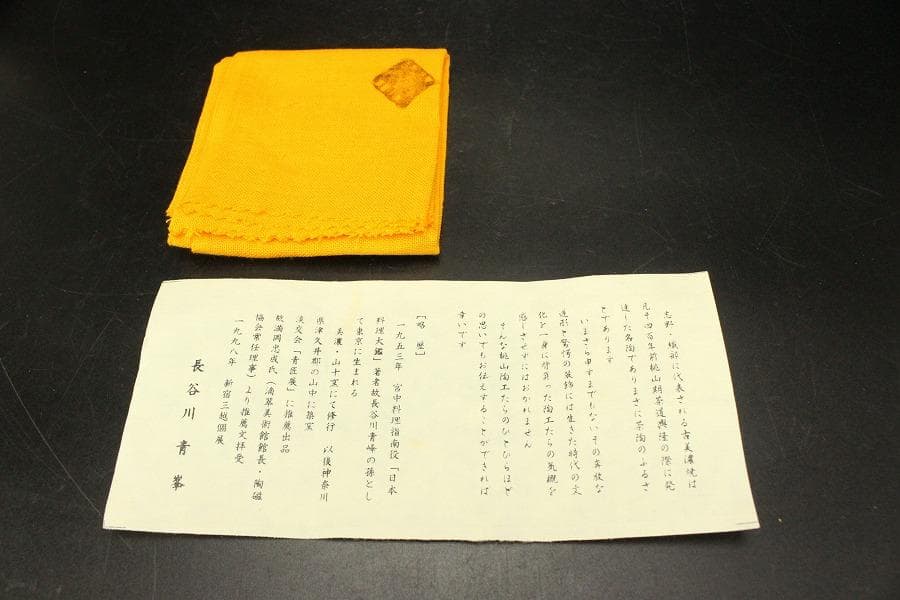 志野・織部に代表される古美濃焼は
凡そ四百年前桃山期茶道興隆の際に発
達した名陶でありまさに茶陶のふるさ
とであります
いまさら申すまでもないその奔放な
造形と驚愕の装飾には生きた時代の文
化を一身に背負った陶工たちの気概を
感じさせずにはおかれません
そんな桃山陶工たちのひとひらほど
の思いでもお伝えすることができれば
幸いです
［略　歴］
一九五三年　宮中料理指南役「日本
料理大鑑」著者故長谷川青峰の孫とし
て東京に生まれる
美濃・山十窯にて修行　以後神奈川
県津久井郡の山中に築窯
淡交会「青匠展」に推薦出品
故満岡忠成氏（滴翠美術館館長・陶磁
協会常任理事）より推薦文拝受
一九九八年　新宿三越個展
長谷川　青　峯